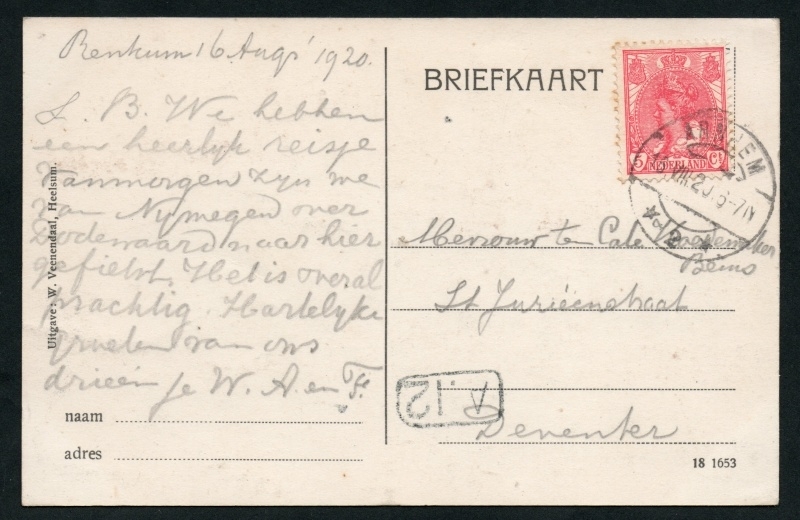 Renkum 16 Augs 1920.
L. B. We hebben
een heerlyk reisje
Vanmorgen zyn we
van Nymegen over
Dodewaard naar hier
gefietst. Het is overal
prachtig. Hartelyke
groeten van ons
drieën je W. A. en F.
naam
adres
Uitgave: W. Veenendaal, Heelsum.
BRIEFKAART
5 Ct
NEDERLAND
ARNHEM
VIII 20 6-7N
Mevrouw ten Cate
Beins
St Juriëenstraat
A 12
Deventer
18 1653